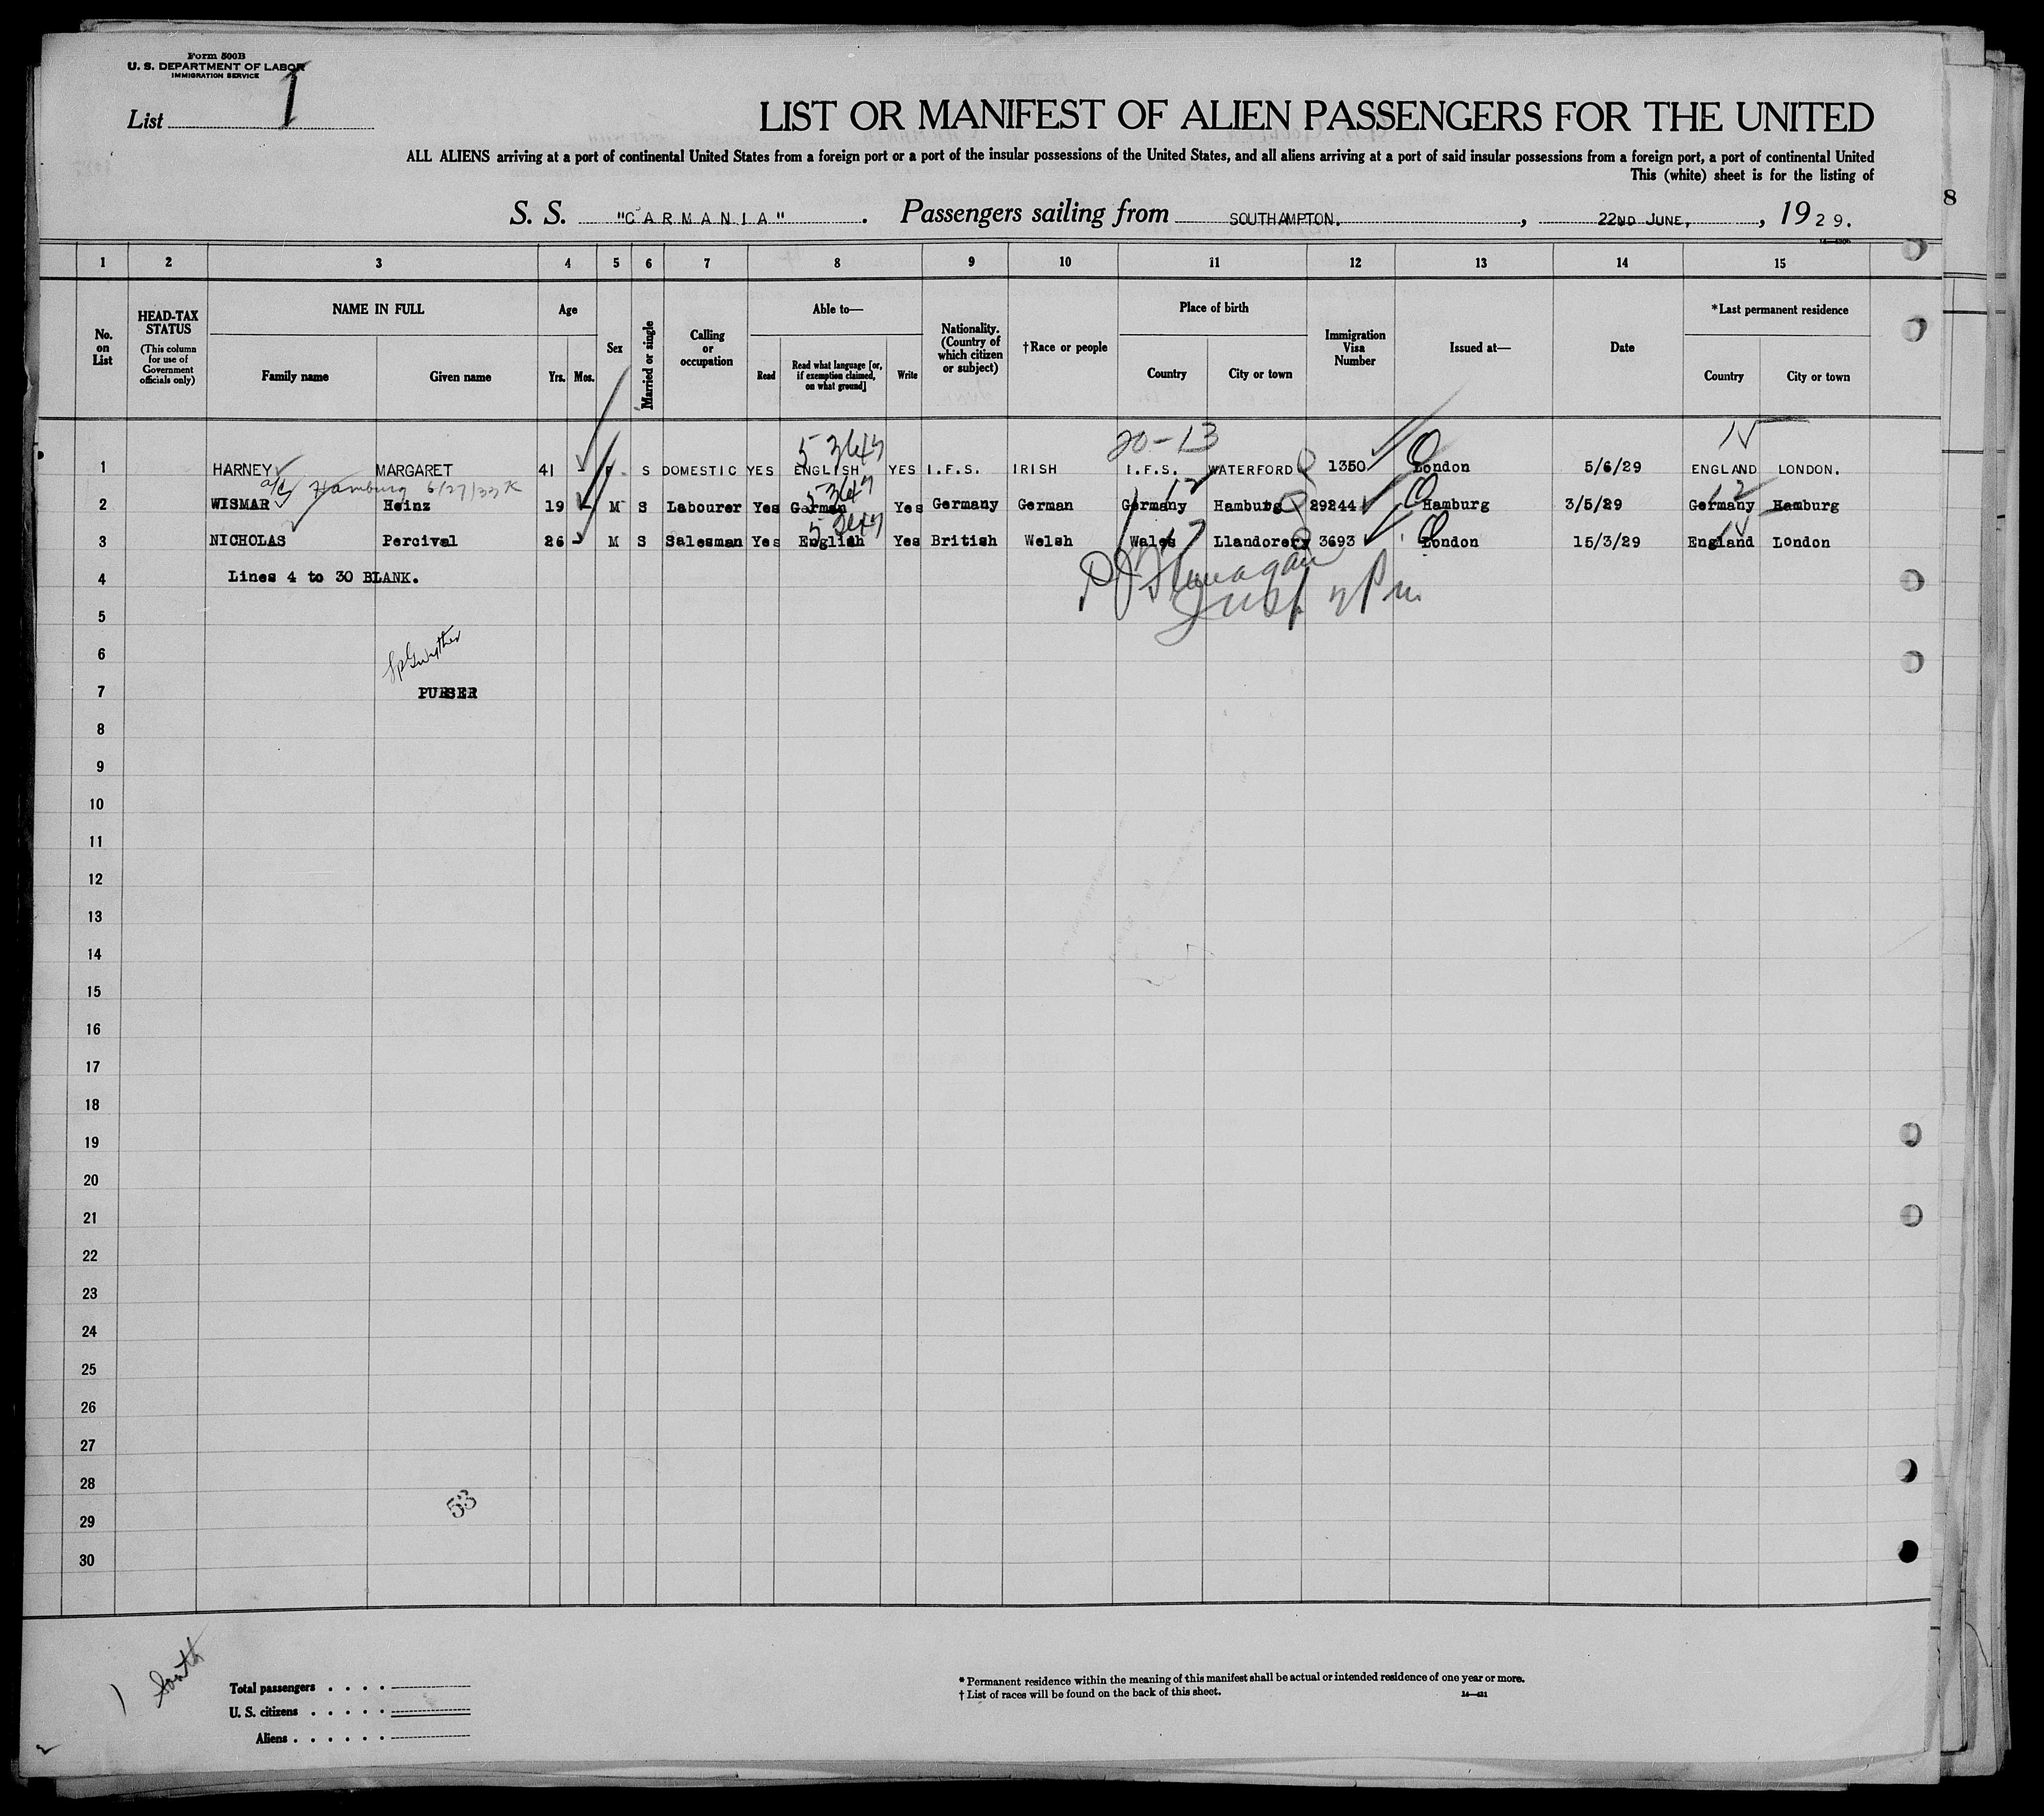 Form 500B
U. S. DEPARTMENT OF LABOR
IMMIGRATION SERVICE
List 1
LIST OR MANIFEST OF ALIEN PASSENGERS FOR THE UNITED
ALL ALIENS arriving at a port of continental United States from a foreign port or a port of the insular possessions of the United States, and all aliens arriving at a port of said insular possessions from a foreign port, a port of continental United
This (white) sheet is for the listing of
8
S. S. "CARMANIA". Passengers sailing from SOUTHAMPTON., 22ND JUNE,, 1929.
1 2 3 4 5 6 7 8 9 10 11 12 13 14 15
No. on List
HEAD-TAX STATUS
(This column for use of Government officials only)
NAME IN FULL
Family name Given name
Age
Yrs. Mos.
Sex
Married or single
Calling or occupation
Able to—
Read
Read what language [or, if exemption claimed, on what ground]
Write
Nationality. (Country of which citizen or subject)
†Race or people
Place of birth
Country City or town
Immigration Visa Number
Issued at—
Date
*Last permanent residence
Country City or town
20-13
1 HARNEY MARGARET 41 - F S DOMESTIC YES ENGLISH YES I.F.S. IRISH I.F.S. WATERFORD 1350 London 5/6/29 ENGLAND LONDON.
Hamburg 6/27/33
2 WISMAR Heinz 19 - M S Labourer Yes German Yes Germany German Germany Hamburg 29244 Hamburg 3/5/29 Germany Hamburg
3 NICHOLAS Percival 26 - M S Salesman Yes English Yes British Welsh Wales Llandorery 3693 London 15/3/29 England London
4 Lines 4 to 30 BLANK.
5
6
7 PURSER
8
9
10
11
12
13
14
15
16
17
18
19
20
21
22
23
24
25
26
27
28
29
30
53
South
Total passengers
U. S. citizens
Aliens
* Permanent residence within the meaning of this manifest shall be actual or intended residence of one year or more.
† List of races will be found on the back of this sheet.
14—421